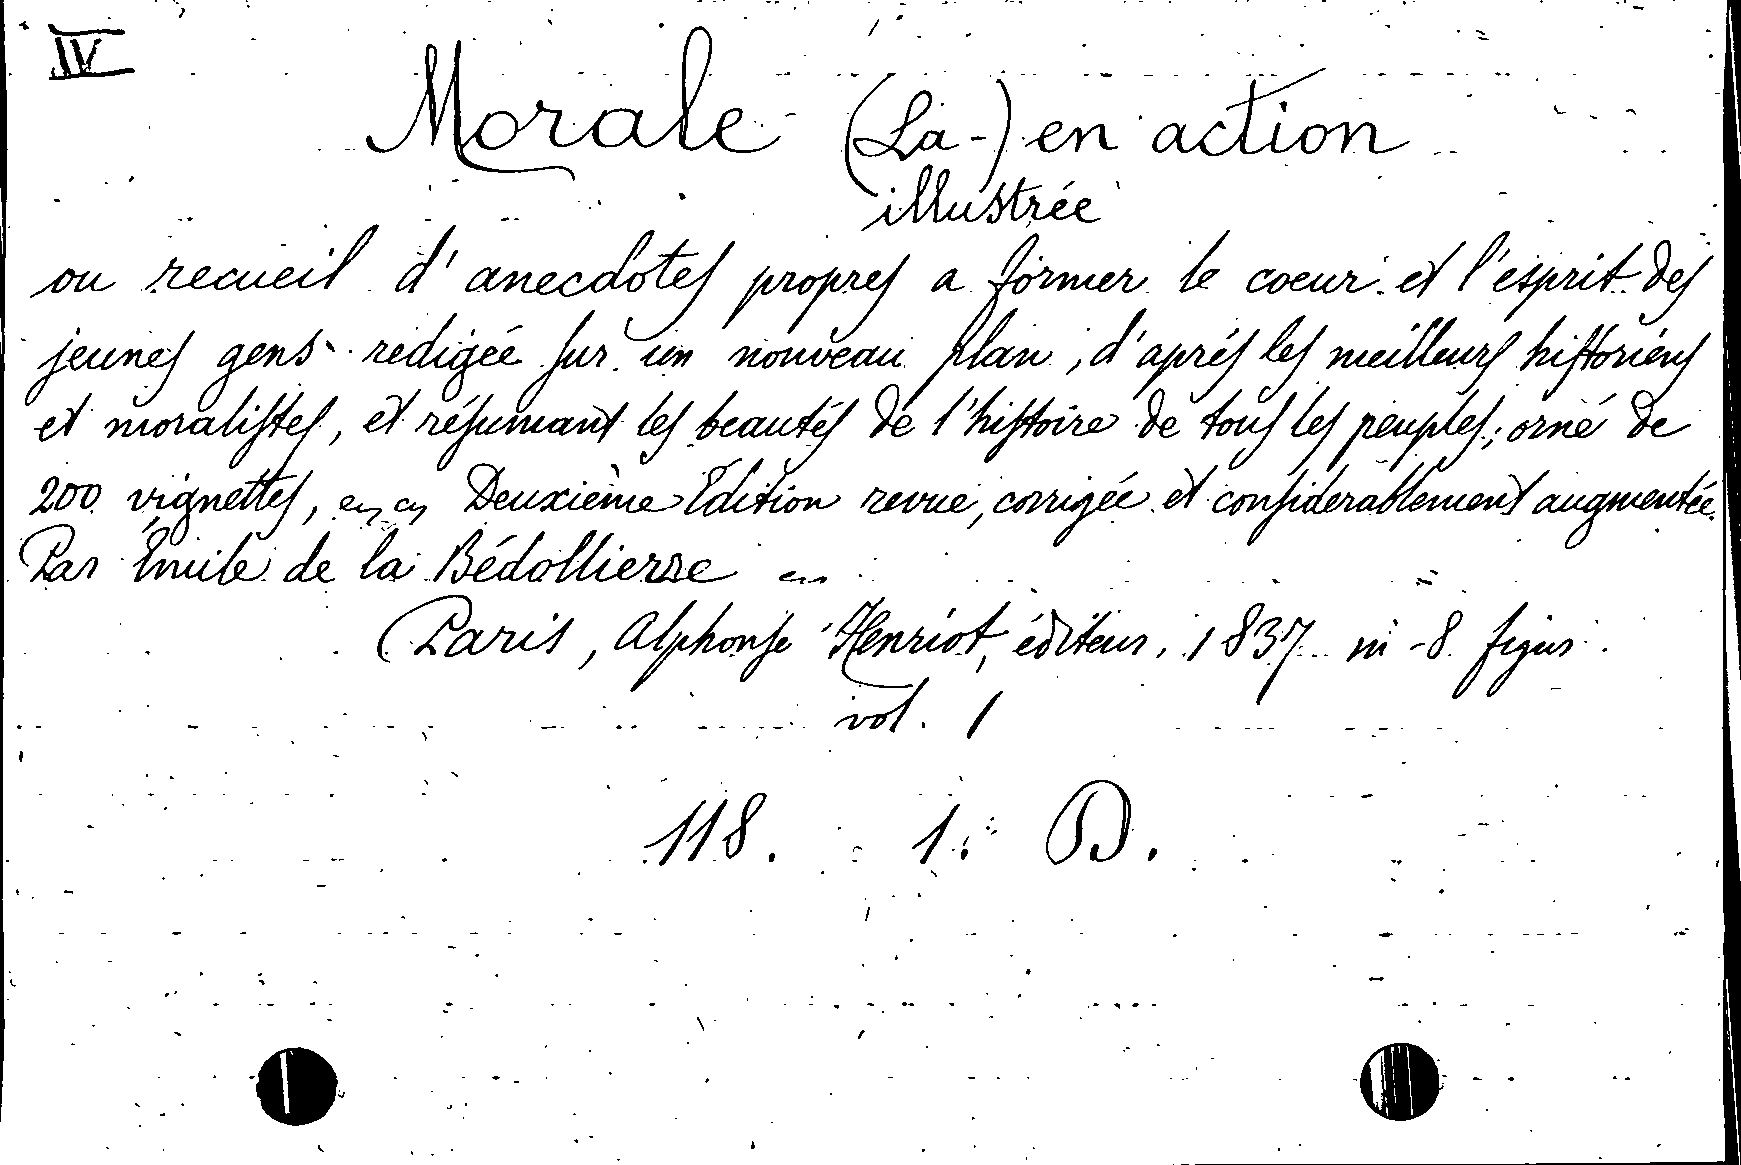 IV
Morale (La-) en action
illustrée
ou recueil d'anecdotes propres a former le coeur et l'esprit des
jeunes gens redigée sur un nouveau plan, d'aprés les meilleurs historiens
et moralistes, et résumant les beautés de l'histoire de tous les peuples; orné de
200 vignettes, Deuxième Edition revue, corrigée et considerablement augmentée.
Par Émile de la Bédollierre
Paris, Alphonse Henriot, éditeur, 1837 in-8 figur.
vol. 1
118. 1. D.